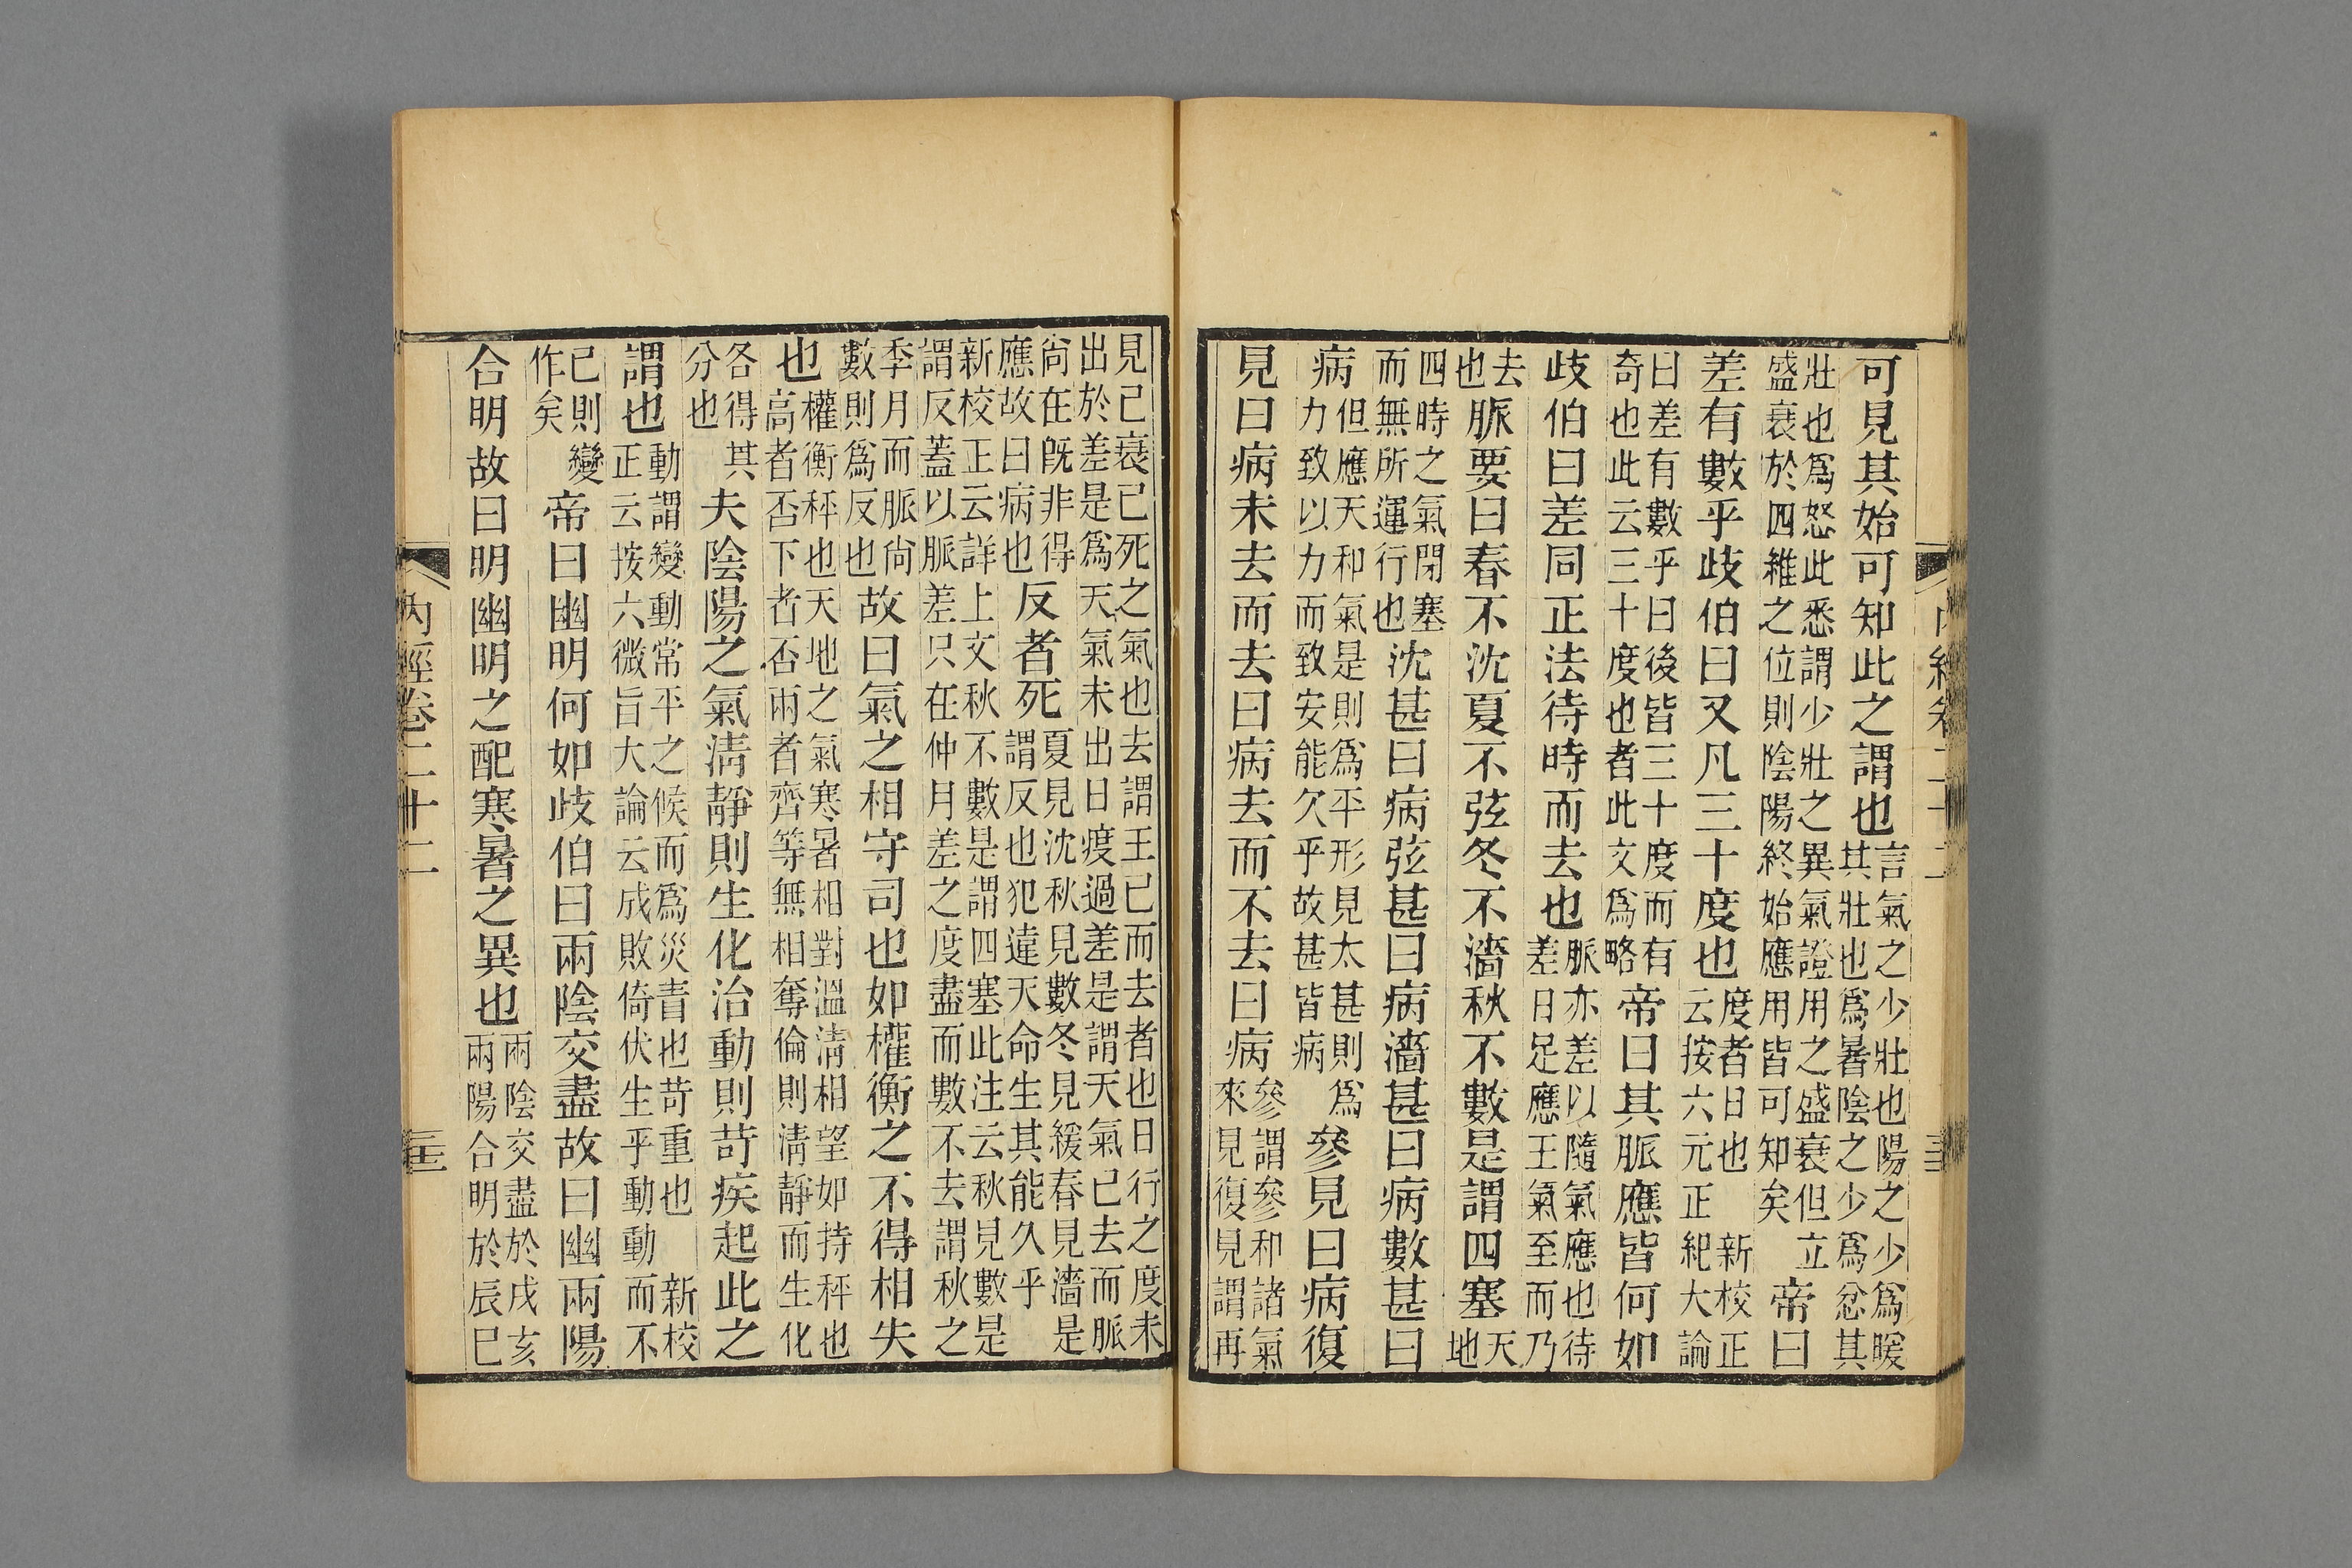 可見其始可知此之謂也言氣之少壯也陽之少爲暖其壯也爲暑陰之少爲忿其
壯也爲怒此悉謂少壯之異氣證用之盛衰但立盛衰於四維之位則陰陽終始應用皆可知矣帝曰
差有數乎歧伯曰又凡三十度也度者日也新校正云按六元正紀大論
曰差有數乎曰後皆三十度而有奇也此云三十度也者此文爲略帝曰其脈應皆何如
歧伯曰差同正法待時而去也脈亦差以隨氣應也待差日足應王氣至而乃
去也脈要曰春不沈夏不弦冬不濇秋不數是謂四塞天地
四時之氣閉塞而無所運行也沈甚曰病弦甚曰病濇甚曰病數甚曰
病但應天和氣是則爲平形見太甚則爲力致以力而致安能久乎故甚皆病參見曰病復
見曰病未去而去曰病去而不去曰病參謂參和諸氣來見復見謂再
見已衰已死之氣也去謂王已而去者也日行之度未出於差是爲天氣未出日度過差是謂天氣已去而脈
尚在既非得應故曰病也反者死夏見沈秋見數冬見緩春見濇是謂反也犯違天命生其能久乎
新校正云詳上文秋不數是謂四塞此注云秋見數是謂反蓋以脈差只在仲月差之度盡而數不去謂秋之
季月而脈尚數則爲反也故曰氣之相守司也如權衡之不得相失
也權衡秤也天地之氣寒暑相對溫淸相望如持秤也高者否下者否兩者齊等無相奪倫則淸靜而生化
各得其分也夫陰陽之氣淸靜則生化治動則苛疾起此之
謂也動謂變動常平之候而爲災眚也苛重也新校正云按六微旨大論云成敗倚伏生乎動動而不
已則變作矣帝曰幽明何如歧伯曰兩陰交盡故曰幽兩陽
合明故曰明幽明之配寒暑之異也兩陰交盡於戌亥兩陽合明於辰巳
內經卷二十二